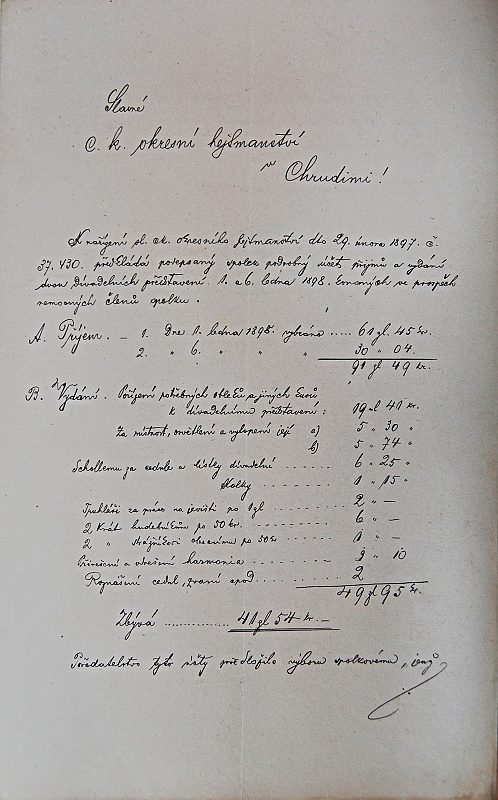 Slavné
c. k. okresní hejtmanství
v Chrudimi!
K nařízení sl. ck. okresního hejtmanství dto 29. února 1897. č.
37.430. předkládá podepsaný spolek podrobný účet příjmů a vydání
dvou divadelních představení 1. a 6. ledna 1898. konaných ve prospěch
nemocných členů spolku.
A. Příjem. – 1. Dne 1. ledna 1898. vybráno ..... 61 zl. 45 kr.
2. " 6. " " " 30 " 04.
91 zl 49 kr.
B. Vydání. Pořízení potřebných obleků a jiných kusů
k divadelnímu představení: 19 zl 41 kr.
Za místnost, osvětlení a vytopení její a) 5 " 30 "
b) 5 " 74 "
Schollemu za cedule a lístky divadelní ....... 6 " 25 "
Kolky ............ 1 " 15 "
Truhláři za práci na jevišti po 1 zl ......... 2 " –
2 krát hudebníkům po 50 kr. .......... 6 " –
2 " strážníkovi obecnímu po 50 kr ......... 1 " –
Přinešení a odnešení harmonia ............ 10
Roznášení cedul, praní apod .......... 2
49 zl 95 kr.
Zbývá ............... 41 zl 54 kr. –
Předsedatelstvo tyto účty předložilo výboru spolkovému, jenž